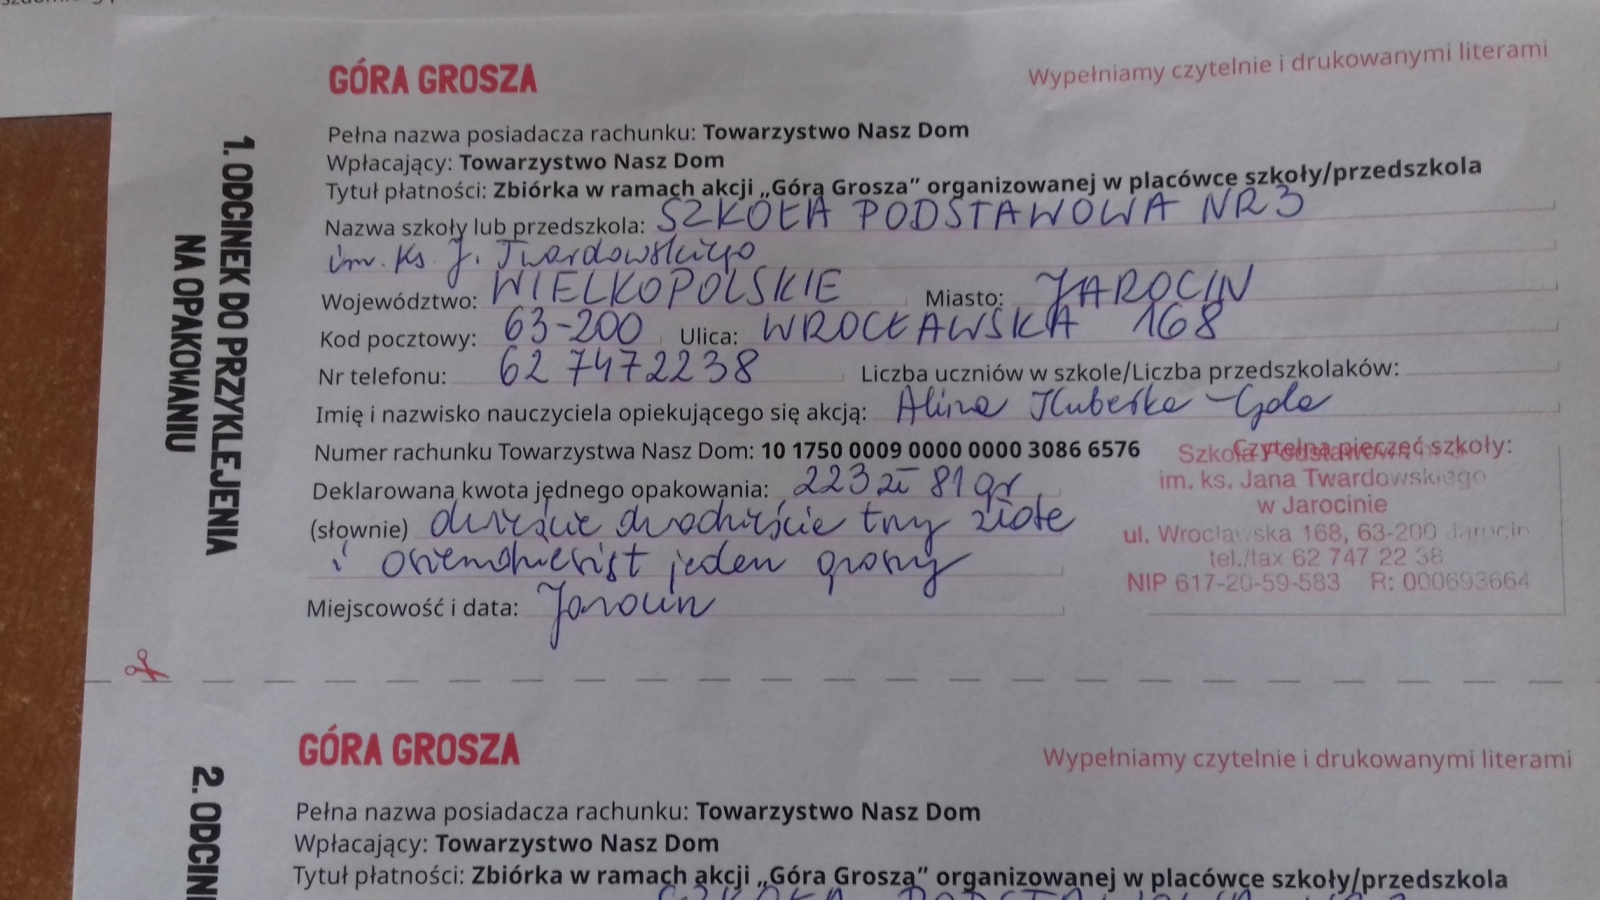 GÓRA GROSZA
Wypełniamy czytelnie i drukowanymi literami
1. ODCINEK DO PRZYKLEJENIA
NA OPAKOWANIU
Pełna nazwa posiadacza rachunku: Towarzystwo Nasz Dom
Wpłacający: Towarzystwo Nasz Dom
Tytuł płatności: Zbiórka w ramach akcji „Góra Grosza” organizowanej w placówce szkoły/przedszkola
Nazwa szkoły lub przedszkola: SZKOŁA PODSTAWOWA NR 3
im. Ks. J. Twardowskiego
Województwo: WIELKOPOLSKIE Miasto: JAROCIN
Kod pocztowy: 63-200 Ulica: WROCŁAWSKA 168
Nr telefonu: 62 7472238 Liczba uczniów w szkole/Liczba przedszkolaków:
Imię i nazwisko nauczyciela opiekującego się akcją: Alina
Numer rachunku Towarzystwa Nasz Dom: 10 1750 0009 0000 0000 3086 6576
Czytelna pieczęć szkoły:
Szkoła Podstawowa
im. ks. Jana Twardowskiego
w Jarocinie
ul. Wrocławska 168, 63-200 Jarocin
tel./fax 62 747 22 38
NIP 617-20-59-583 R: 000693664
Deklarowana kwota jednego opakowania: 223 zł 81 gr
(słownie) dwieście dwadzieścia trzy złote
i osiemdziesiąt jeden groszy
Miejscowość i data: Jarocin
GÓRA GROSZA
Wypełniamy czytelnie i drukowanymi literami
2. ODCIN
Pełna nazwa posiadacza rachunku: Towarzystwo Nasz Dom
Wpłacający: Towarzystwo Nasz Dom
Tytuł płatności: Zbiórka w ramach akcji „Góra Grosza” organizowanej w placówce szkoły/przedszkola